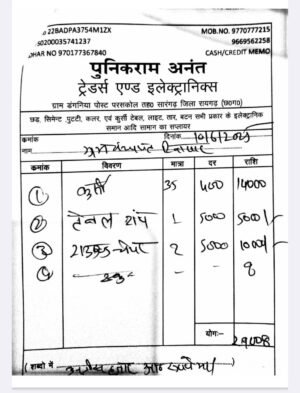 22BADPA3754M1ZX
50200035741237
DHAR NO 970177367840
MOB.NO. 9770777215
9669562258
CASH/CREDIT MEMO
पुनिकराम अनंत
ट्रेडर्स एण्ड इलेक्ट्रानिक्स
ग्राम डंगनिया पोस्ट परसकोल तह० सारंगढ़ जिला रायगढ़ (छ०ग०)
छड़, सिमेन्ट ,पुटटी, कलर, एवं कुर्सी टेबल, लाइट, तार, बटन सभी प्रकार के इलेक्ट्रानिक
समान आदि सामान का सप्लायर
कमांक
दिनांक
नाम ग्राम पंचायत
कमांक विवरण मात्रा दर राशि
① कुर्सी 35 400 14000
② टेबल 1 5000 5000/-
③ 2 5000 10000/-
④ - - 8
योग:- 29008
(शब्दो में